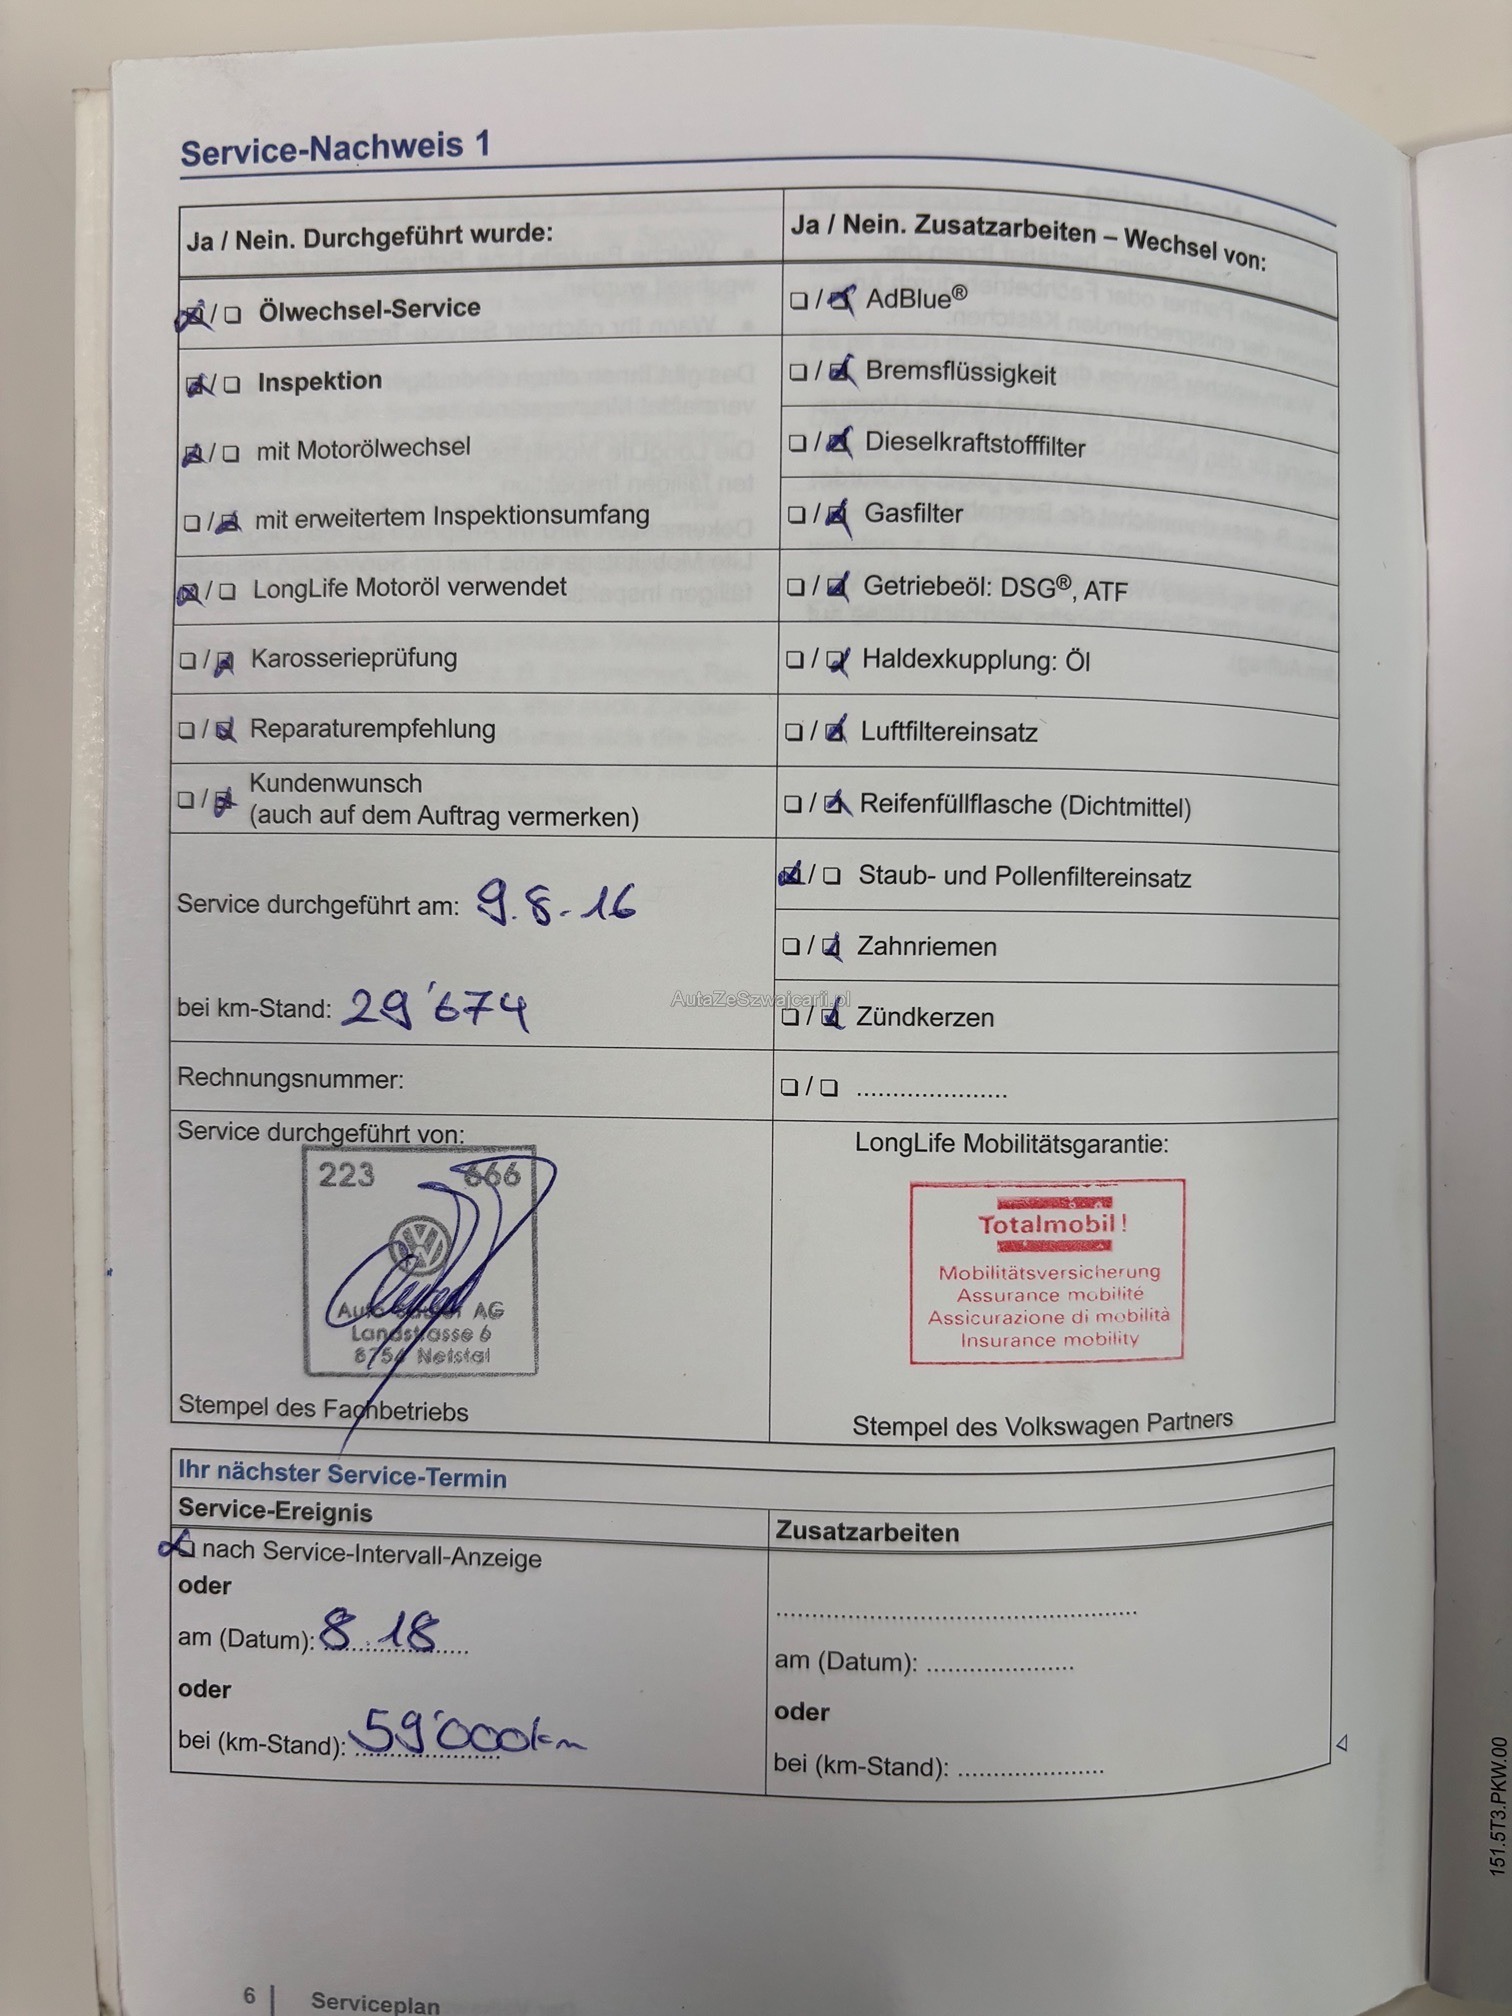 Service-Nachweis 1
Ja / Nein. Durchgeführt wurde:
☒/☐ Ölwechsel-Service
☒/☐ Inspektion
☒/☐ mit Motorölwechsel
☐/☒ mit erweitertem Inspektionsumfang
☒/☐ LongLife Motoröl verwendet
☐/☒ Karosserieprüfung
☐/☒ Reparaturempfehlung
☐/☒ Kundenwunsch
(auch auf dem Auftrag vermerken)
Service durchgeführt am: 9.8.-16
bei km-Stand: 29'674
Rechnungsnummer:
Service durchgeführt von:
223 666
Auto AG
Landstrasse 6
Netstal
Stempel des Fachbetriebs
Ja / Nein. Zusatzarbeiten – Wechsel von:
☐/☒ AdBlue®
☐/☒ Bremsflüssigkeit
☐/☒ Dieselkraftstofffilter
☐/☒ Gasfilter
☐/☒ Getriebeöl: DSG®, ATF
☐/☒ Haldexkupplung: Öl
☐/☒ Luftfiltereinsatz
☐/☒ Reifenfüllflasche (Dichtmittel)
☒/☐ Staub- und Pollenfiltereinsatz
☐/☒ Zahnriemen
AutaZeSzwajcarii.pl
☐/☒ Zündkerzen
☐/☐ .....................
LongLife Mobilitätsgarantie:
Totalmobil!
Mobilitätsversicherung
Assurance mobilité
Assicurazione di mobilità
Insurance mobility
Stempel des Volkswagen Partners
Ihr nächster Service-Termin
Service-Ereignis
☒ nach Service-Intervall-Anzeige
oder
am (Datum): 8.18
oder
bei (km-Stand): 59'000km
Zusatzarbeiten
..................................................
am (Datum): .....................
oder
bei (km-Stand): .....................
151.5T3.PKW.00
6 | Serviceplan